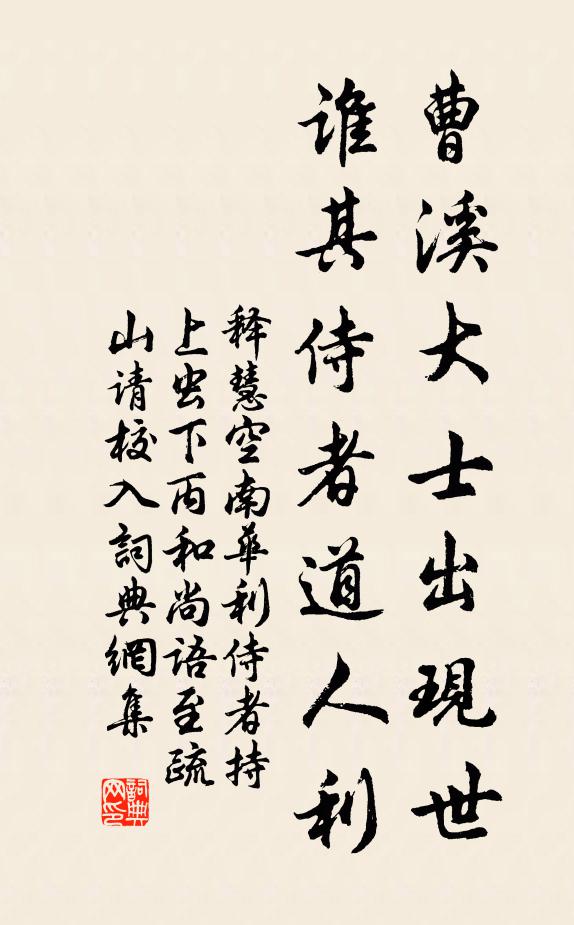 曹溪大士出現世
谁其侍者道人利
释慧空南華利侍者持
上虫下丙和尚语至疏
山请校入詞典網集
詞典网印